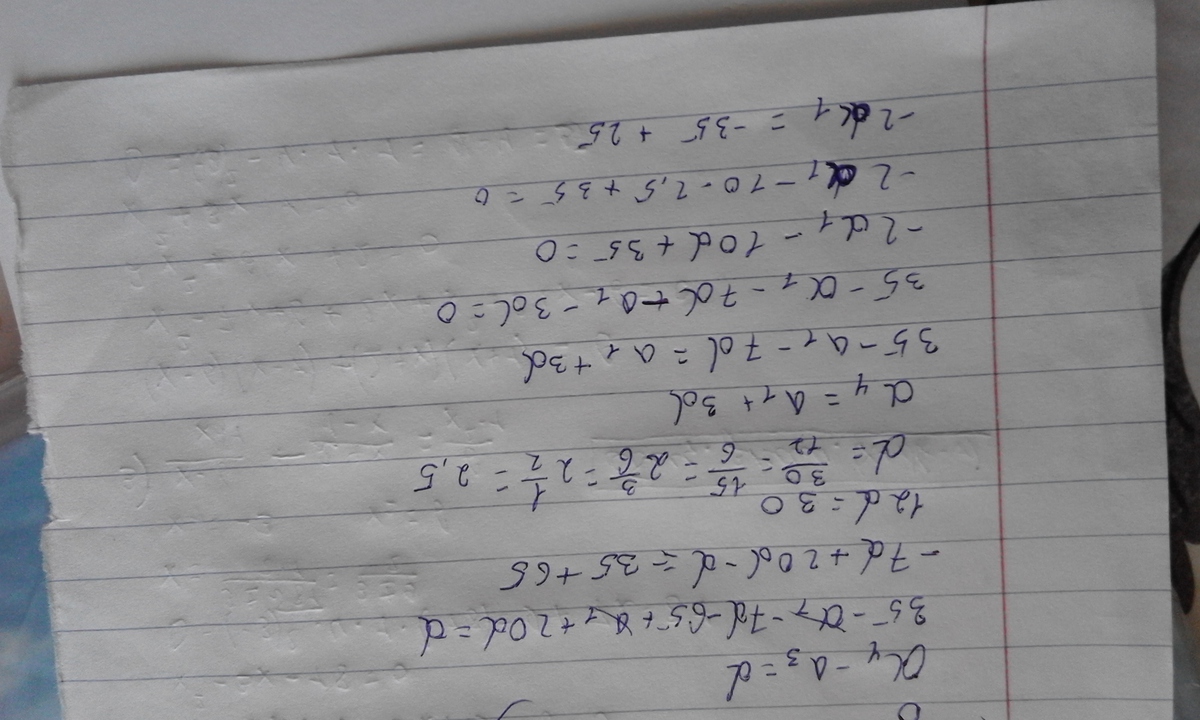 a₄ - a₃ = d
35 - a₁ - 7d - 65 + a₁ + 20d = d
-7d + 20d - d = 35 + 65
12d = 30
d = 30/12 = 15/6 = 2 3/6 = 2 1/2 = 2,5
a₄ = a₁ + 3d
35 - a₁ - 7d = a₁ + 3d
35 - a₁ - 7d - a₁ - 3d = 0
-2a₁ - 10d + 35 = 0
-2a₁ - 10 · 2,5 + 35 = 0
-2a₁ = -35 + 25